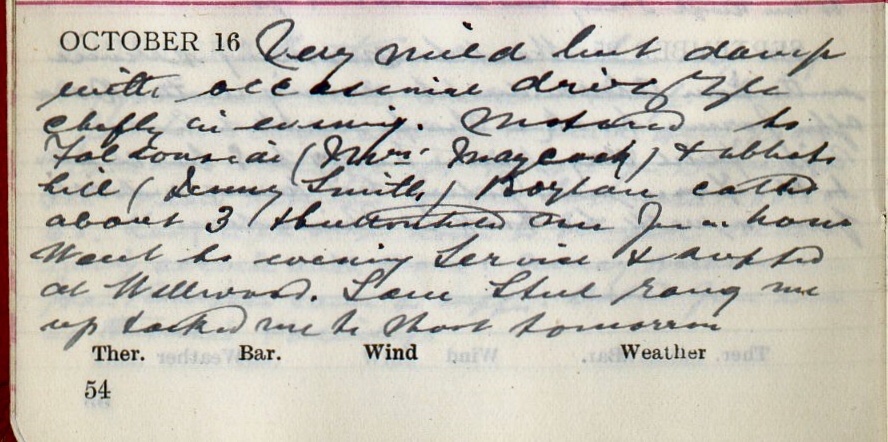 OCTOBER 16 Very mild but damp
with occasional drizzle
chefly in evening. Motored to
(Mrs. Maycock) & Abbots
hill (Denny Smith) Boylan called
about 3 & an hour
Went to evening Service & supped
at Wellwood. Sam rang me
up & asked me to shoot tomorrow
Ther. Bar. Wind Weather
54